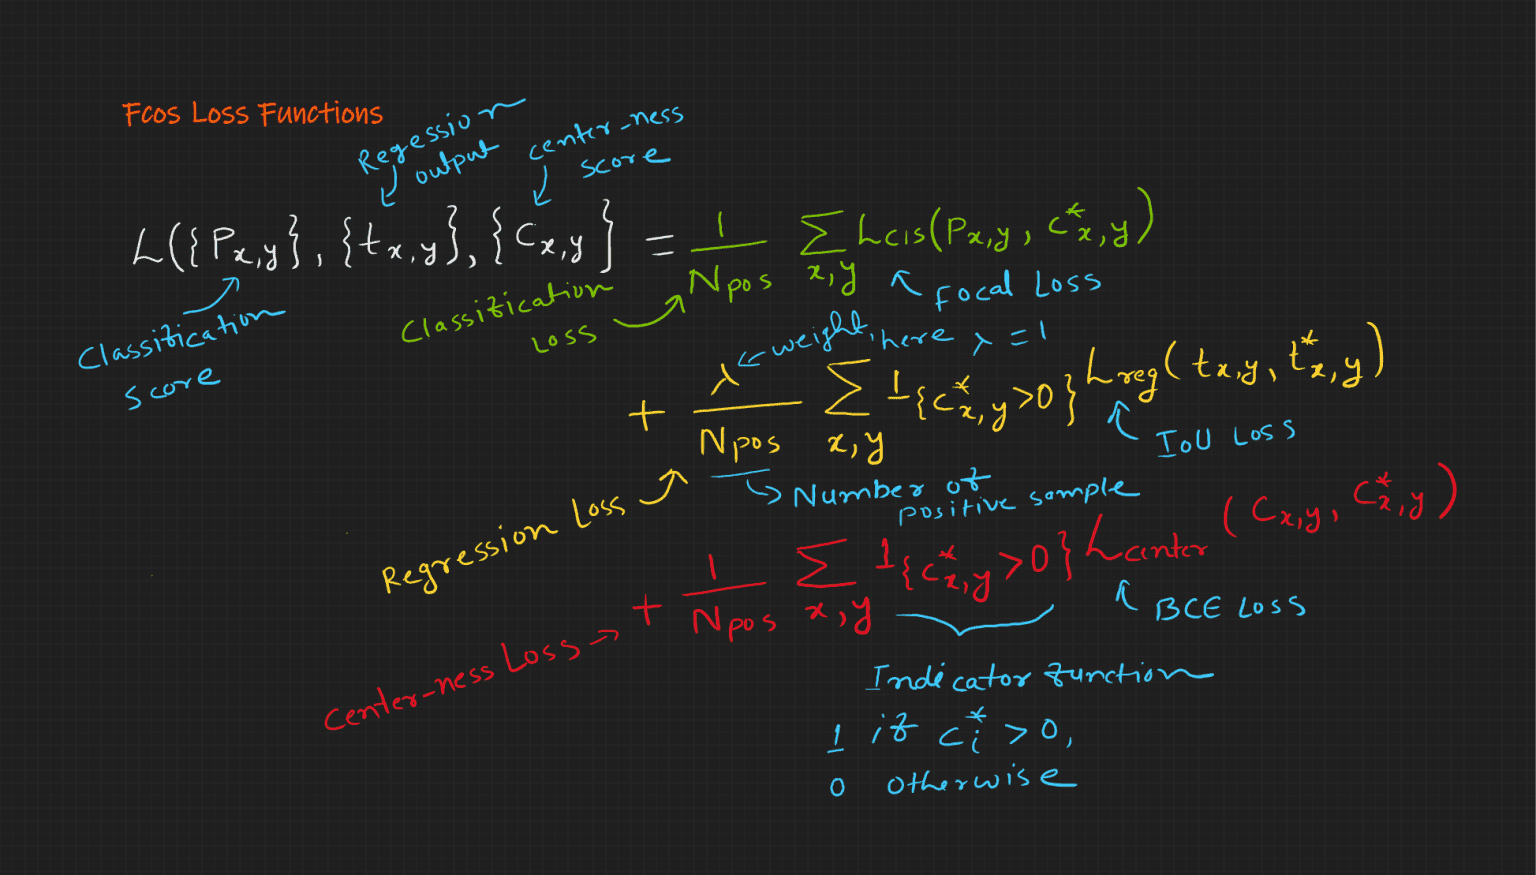 Fcos Loss Functions
Regression
output
center-ness
score
L({Px,y}, {tx,y}, {Cx,y} = 1/Npos Σx,y Lcls(Px,y, c*x,y)
Classification
score
Classification
Loss
Focal Loss
weight, here λ = 1
+ λ/Npos Σx,y 1{c*x,y>0} Lreg(tx,y, t*x,y)
IoU Loss
Regression Loss
Number of
positive sample
+ 1/Npos Σx,y 1{c*x,y>0} Lcenter(Cx,y, C*x,y)
BCE Loss
Center-ness Loss
Indicator function
1 if c*i > 0,
0 otherwise